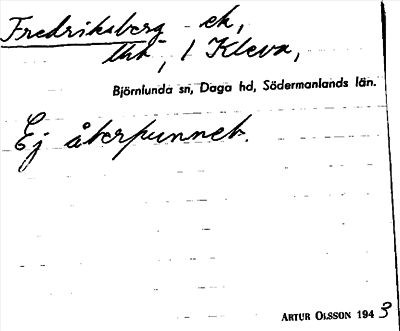 Fredriksberg - ek,
tht, / Kleva,
Björnlunda sn, Daga hd, Södermanlands län.
Ej återfunnet.
ARTUR OLSSON 1943